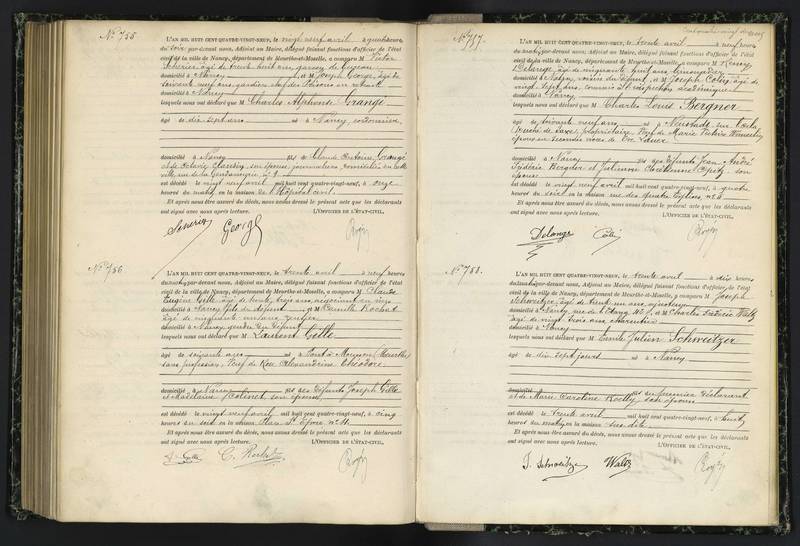 N° 755
L'AN MIL HUIT CENT QUATRE-VINGT-NEUF, le vingt neuf avril à quatre heures
du soir par-devant nous, Adjoint au Maire, délégué faisant fonctions d'officier de l'état
civil de la ville de Nancy, département de Meurthe-et-Moselle, a comparu M Victor
âgé de trente huit ans, garçon de bureau
domicilié à Nancy et M Joseph George, âgé de
soixante neuf ans, gardien chef des Prisons en retraite
domicilié à Nancy
lesquels nous ont déclaré que M Charles Alphonse Grange
âgé de dix sept ans né à Nancy, cordonnier,
domicilié à Nancy fils de Claude Antoine Grange
et de son épouse, journaliers, domiciliés en cette
ville, rue de la Gendarmerie, n° 9
est décédé le vingt neuf avril mil huit cent quatre-vingt-neuf, à onze
heures du matin, en la maison de l'Hôpital civil.
Et après nous être assuré du décès, nous avons dressé le présent acte que les déclarants
ont signé avec nous après lecture. L'OFFICIER DE L'ÉTAT-CIVIL,
George
N° 756
L'AN MIL HUIT CENT QUATRE-VINGT-NEUF, le trente avril à neuf heures
du matin par-devant nous, Adjoint au Maire, délégué faisant fonctions d'officier de l'état
civil de la ville de Nancy, département de Meurthe-et-Moselle, a comparu M
Eugène Gille, âgé de trente trois ans, négociant en vins
domicilié à Nancy, fils du défunt et M Camille Rochat
âgé de cinquante ans,
domicilié à Nancy, gendre du défunt
lesquels nous ont déclaré que M Laurent Gille
âgé de soixante ans né à Pont à Mousson (Meurthe)
sans profession, Veuf de Alexandrine Théodore
domicilié à Nancy fils des défunts Joseph Gille
et Madelaine son épouse
est décédé le vingt neuf avril mil huit cent quatre-vingt-neuf, à cinq
heures du soir en la maison Place St Epvre n° 11
Et après nous être assuré du décès, nous avons dressé le présent acte que les déclarants
ont signé avec nous après lecture. L'OFFICIER DE L'ÉTAT-CIVIL,
Gille C. Rochat
N° 757
L'AN MIL HUIT CENT QUATRE-VINGT-NEUF, le trente avril à neuf heures
du matin par-devant nous, Adjoint au Maire, délégué faisant fonctions d'officier de l'état
civil de la ville de Nancy, département de Meurthe-et-Moselle, a comparu M
Delange, âgé de cinquante neuf ans,
domicilié à Nancy, voisin du défunt, et M Joseph âgé de
vingt sept ans, commis d'Inspection académique
domicilié à Nancy
lesquels nous ont déclaré que M Charles Louis Bergner
âgé de soixante ans né à Neustadt sur
Duché de Saxe, propriétaire, Veuf de Marie Victoire
époux en secondes noces de
domicilié à Nancy fils des défunts Jean André
Frédéric Bergner et Julienne son
épouse
est décédé le vingt neuf avril mil huit cent quatre-vingt-neuf, à quatre
heures du soir en la maison rue des quatre Églises n° 5
Et après nous être assuré du décès, nous avons dressé le présent acte que les déclarants
ont signé avec nous après lecture. L'OFFICIER DE L'ÉTAT-CIVIL,
Delange
N° 758
L'AN MIL HUIT CENT QUATRE-VINGT-NEUF, le trente avril à dix heures
du matin par-devant nous, Adjoint au Maire, délégué faisant fonctions d'officier de l'état
civil de la ville de Nancy, département de Meurthe-et-Moselle, a comparu M Joseph
Schweitzer, âgé de trente un ans,
domicilié à Nancy, rue de l'Étang et M Charles Frédéric Waltz
âgé de vingt trois ans, charentier
domicilié à Nancy
lesquels nous ont déclaré que M Emile Julien Schweitzer
âgé de dix sept jours né à Nancy
domicilié fils du premier déclarant
et de Marie Caroline son épouse
est décédé le trente avril mil huit cent quatre-vingt-neuf, à huit
heures du matin en la maison susdite
Et après nous être assuré du décès, nous avons dressé le présent acte que les déclarants
ont signé avec nous après lecture. L'OFFICIER DE L'ÉTAT-CIVIL,
J. Schweitzer Waltz